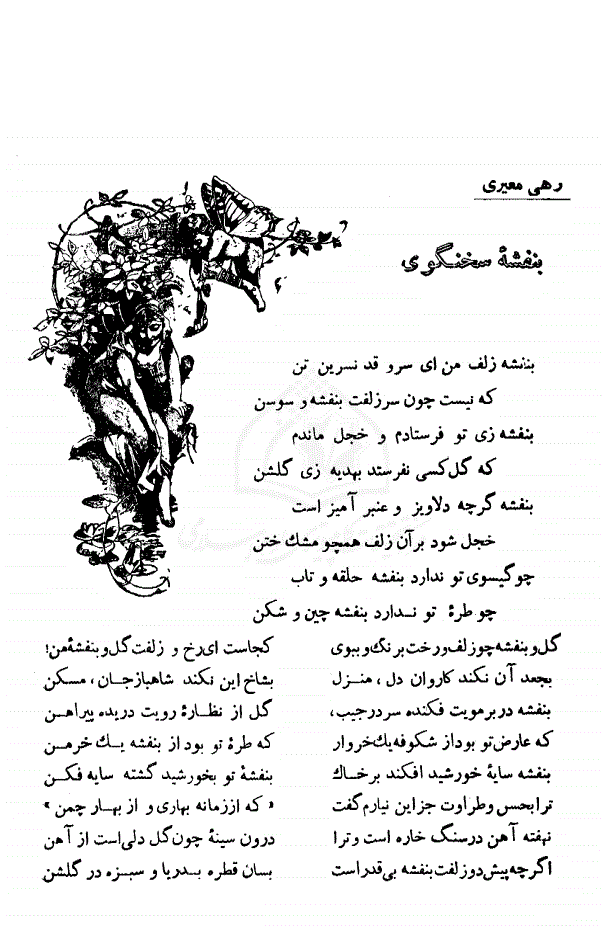 رهی معیری
بنفشهٔ سخنگوی
بنفشه زلف من ای سرو قد نسرین تن
که نیست چون سر زلفت بنفشه و سوسن
بنفشه زی تو فرستادم و خجل ماندم
که گل کسی نفرستد بهدیه زی گلشن
بنفشه گرچه دلاویز و عنبر آمیز است
خجل شود بر آن زلف همچو مشك ختن
چو گیسوی تو ندارد بنفشه حلقه و تاب
چو طرهٔ تو نـدارد بنفشه چین و شکن
گل و بنفشه چو زلف و رخت برنگ و ببوی کجاست ای رخ و زلفت گل و بنفشهٔ من!
بجعد آن نکند کاروان دل، منزل بشاخ این نکند شاهبازجـان، مسکن
بنفشه در بر مویت فکنده سر در جیب، گل از نظارهٔ رویت دریده پیراهـن
که عارض تو بود از شکوفه یك خروار که طرهٔ تو بود از بنفشه یـك خرمـن
بنفشه سایهٔ خورشید افکند برخـاك بنفشهٔ تو بخورشید گشته سایه فکـن
ترا بحسن و طراوت جز این نیارم گفت « که از زمانه بهاری و از بهـار چمن »
نهفته آهن در سنگ خاره است و ترا درون سینهٔ چون گل دلی است از آهن
اگرچه پیش دو زلفت بنفشه بی قدر است بسان قطره بـدریا و سبـزه در گلشن